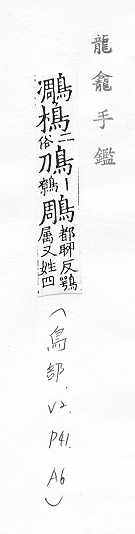 龍龕手鑑
二俗鳭丨鷯鵰都聊反鶚属又姓四
(鳥部. V2. P41. A6)